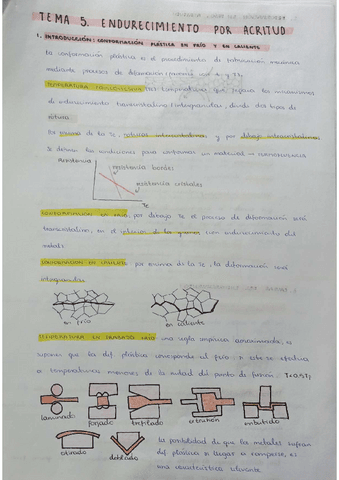 TEMA 5. ENDURECIMIENTO POR ACRITUD
1. INTRODUCCIÓN: CONFORMACIÓN PLÁSTICA EN FRÍO Y EN CALIENTE
La conformación plástica es el procedimiento de fabricación mecánica
mediante procesos de deformación
de endurecimiento transcristalino / intergranular, donde dos tipos de
rotura
Por encima de la Te, roturas intercristalinas, y por debajo intracristalinas
Se desean las condiciones para conformar un material
Resistencia
resistencia bordes
resistencia cristales
Te
CONFORMACIÓN EN FRÍO, por debajo Te el proceso de deformación será
transcristalino, en el interior de los granos con endurecimiento del
metal.
CONFORMACIÓN EN CALIENTE, por encima de la Te, la deformación será
intergranular.
en frío
en caliente
TEMPERATURA EN TRABAJO FRÍO una regla empírica aproximada, es
suponer que la def. plástica corresponde al frío si este se efectúa
a temperaturas menores de la mitad del punto de fusión. T<0.5Tf
laminado
forjado
trefilado
extrusión
embutido
estirado
doblado
La posibilidad de que los metales sufran
def. plástica sin llegar a romperse, es
una característica relevante.